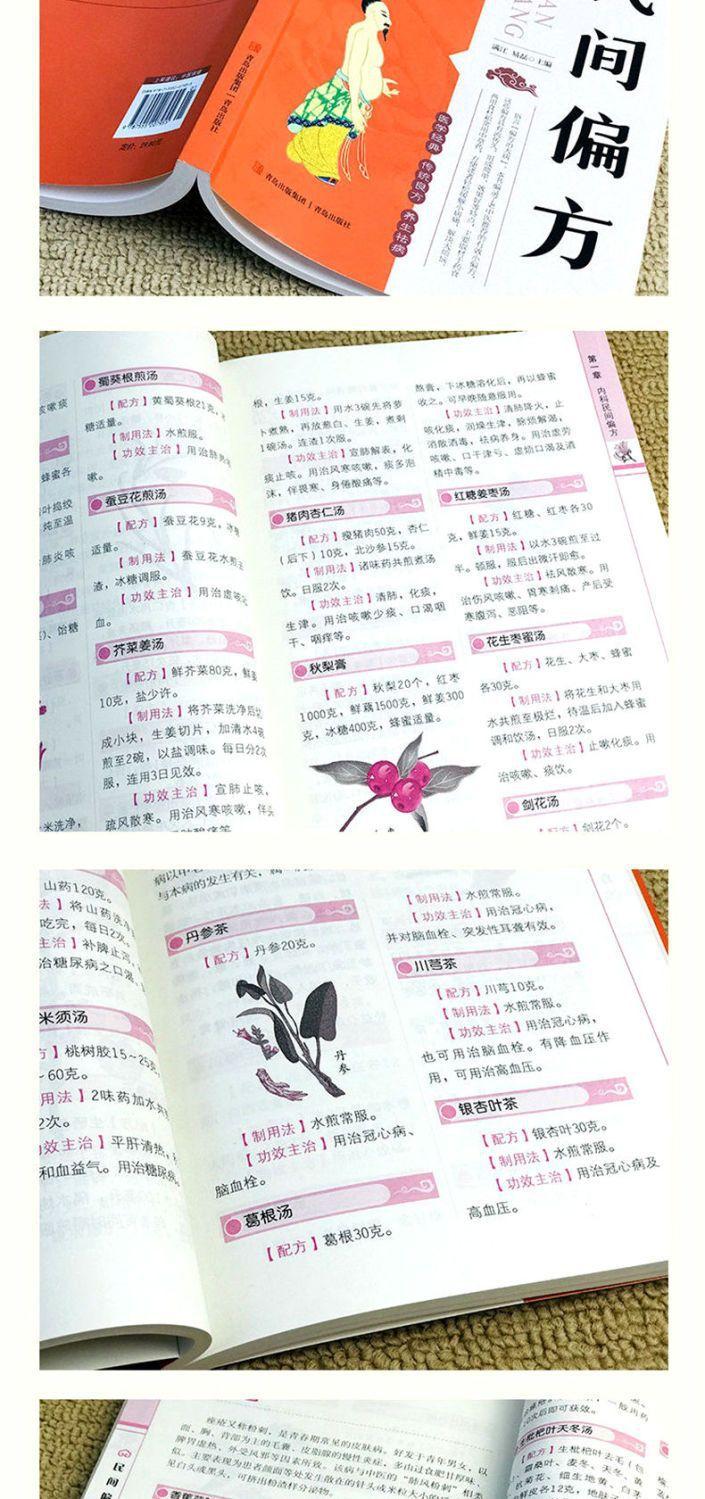 民间偏方
满江 易磊 主编
医学经典 传统良方 养生祛病
青岛出版集团 | 青岛出版社
青岛出版集团 | 青岛出版社
蜀葵根煎汤
【配方】黄蜀葵根21克,
糖适量。
【制用法】水煎服。
【功效主治】用治肺
嗽。
蚕豆花煎汤
【配方】蚕豆花9克,冰
适量。
【制用法】蚕豆花水煎
渣,冰糖调服。
【功效主治】用治虚咳
血。
芥菜姜汤
【配方】鲜芥菜80克,鲜
10克,盐少许。
【制用法】将芥菜洗净后切
成小块,生姜切片,加清水4碗
煎至2碗,以盐调味。每日分2次
服,连用3日见效。
【功效主治】宣肺止咳,
疏风散寒。用治风寒咳嗽,伴头
根,生姜15克。
【制用法】用水3碗先将萝
卜煮熟,再放葱白、生姜,煮剩
1碗汤。连渣1次服。
【功效主治】宣肺解表,化
痰止咳。用治风寒咳嗽,痰多泡
沫,伴畏寒、身倦酸痛等。
猪肉杏仁汤
【配方】瘦猪肉50克,杏仁
(后下)10克,北沙参15克。
【制用法】诸味药共煎煮汤
饮。日服2次。
【功效主治】清肺,化痰,
生津。用治咳嗽少痰、口渴咽
干、咽痒等。
秋梨膏
【配方】秋梨20个,红枣
1000克,鲜藕1500克,鲜姜300
克,冰糖400克,蜂蜜适量。
熬膏,下冰糖溶化后,再以蜂蜜
收之。可早晚随意服用。
【功效主治】清肺降火,止
咳化痰,润燥生津,除烦解渴,
消散酒毒,祛病养身。用治虚劳
咳嗽、口干津亏、虚烦口渴及酒
精中毒等。
红糖姜枣汤
【配方】红糖、红枣各30
克,鲜姜15克。
【制用法】以水3碗煎至过
半。顿服,服后出微汗即愈。
【功效主治】祛风散寒。用
治伤风咳嗽、胃寒刺痛、产后受
寒腹泻、恶阻等。
花生枣蜜汤
【配方】花生、大枣、蜂蜜
各30克。
【制用法】将花生和大枣用
水共煎至极烂,待温后加入蜂蜜
调和饮汤,日服2次。
【功效主治】止嗽化痰。用
治咳嗽、痰饮。
剑花汤
【配方】剑花2个。
第一章 内科民间偏方
山药120克。
法】将山药洗
吃完,每日2次。
主治】补脾止泻,
米须汤
方】桃树胶15~25克,
~60克。
用法】2味药加水共
2次。
功效主治】平肝清热,
和血益气。用治糖尿病。
与本病的发生有关,
丹参茶
【配方】丹参20克。
丹参
【制用法】水煎常服。
【功效主治】用治冠心病、
脑血栓。
葛根汤
【配方】葛根30克。
【制用法】水煎常服。
【功效主治】用治冠心病,
并对脑血栓、突发性耳聋有效。
川芎茶
【配方】川芎10克。
【制用法】水煎常服。
【功效主治】用治冠心病,
也可用治脑血栓。有降血压作
用,可用治高血压。
银杏叶茶
【配方】银杏叶30克。
【制用法】水煎常服。
【功效主治】用治冠心病及
高血压。
民间偏
痤疮又称粉刺,是青春期常见的皮肤病。好发于青年男女,以
面、胸、背部为主的毛囊、皮脂腺的慢性炎症,多由过食肥甘厚味、
脾胃湿热、外受风邪等因素所致。该病与中医的“肺风粉刺”相类
似。主要表现为患者颜面等处发生散在的针头或米粒大小的
见白头或黑头,可挤出粉渣样分泌物。
10次后即可获效。
生枇杷叶天冬汤
【配方】生枇杷叶去毛(包